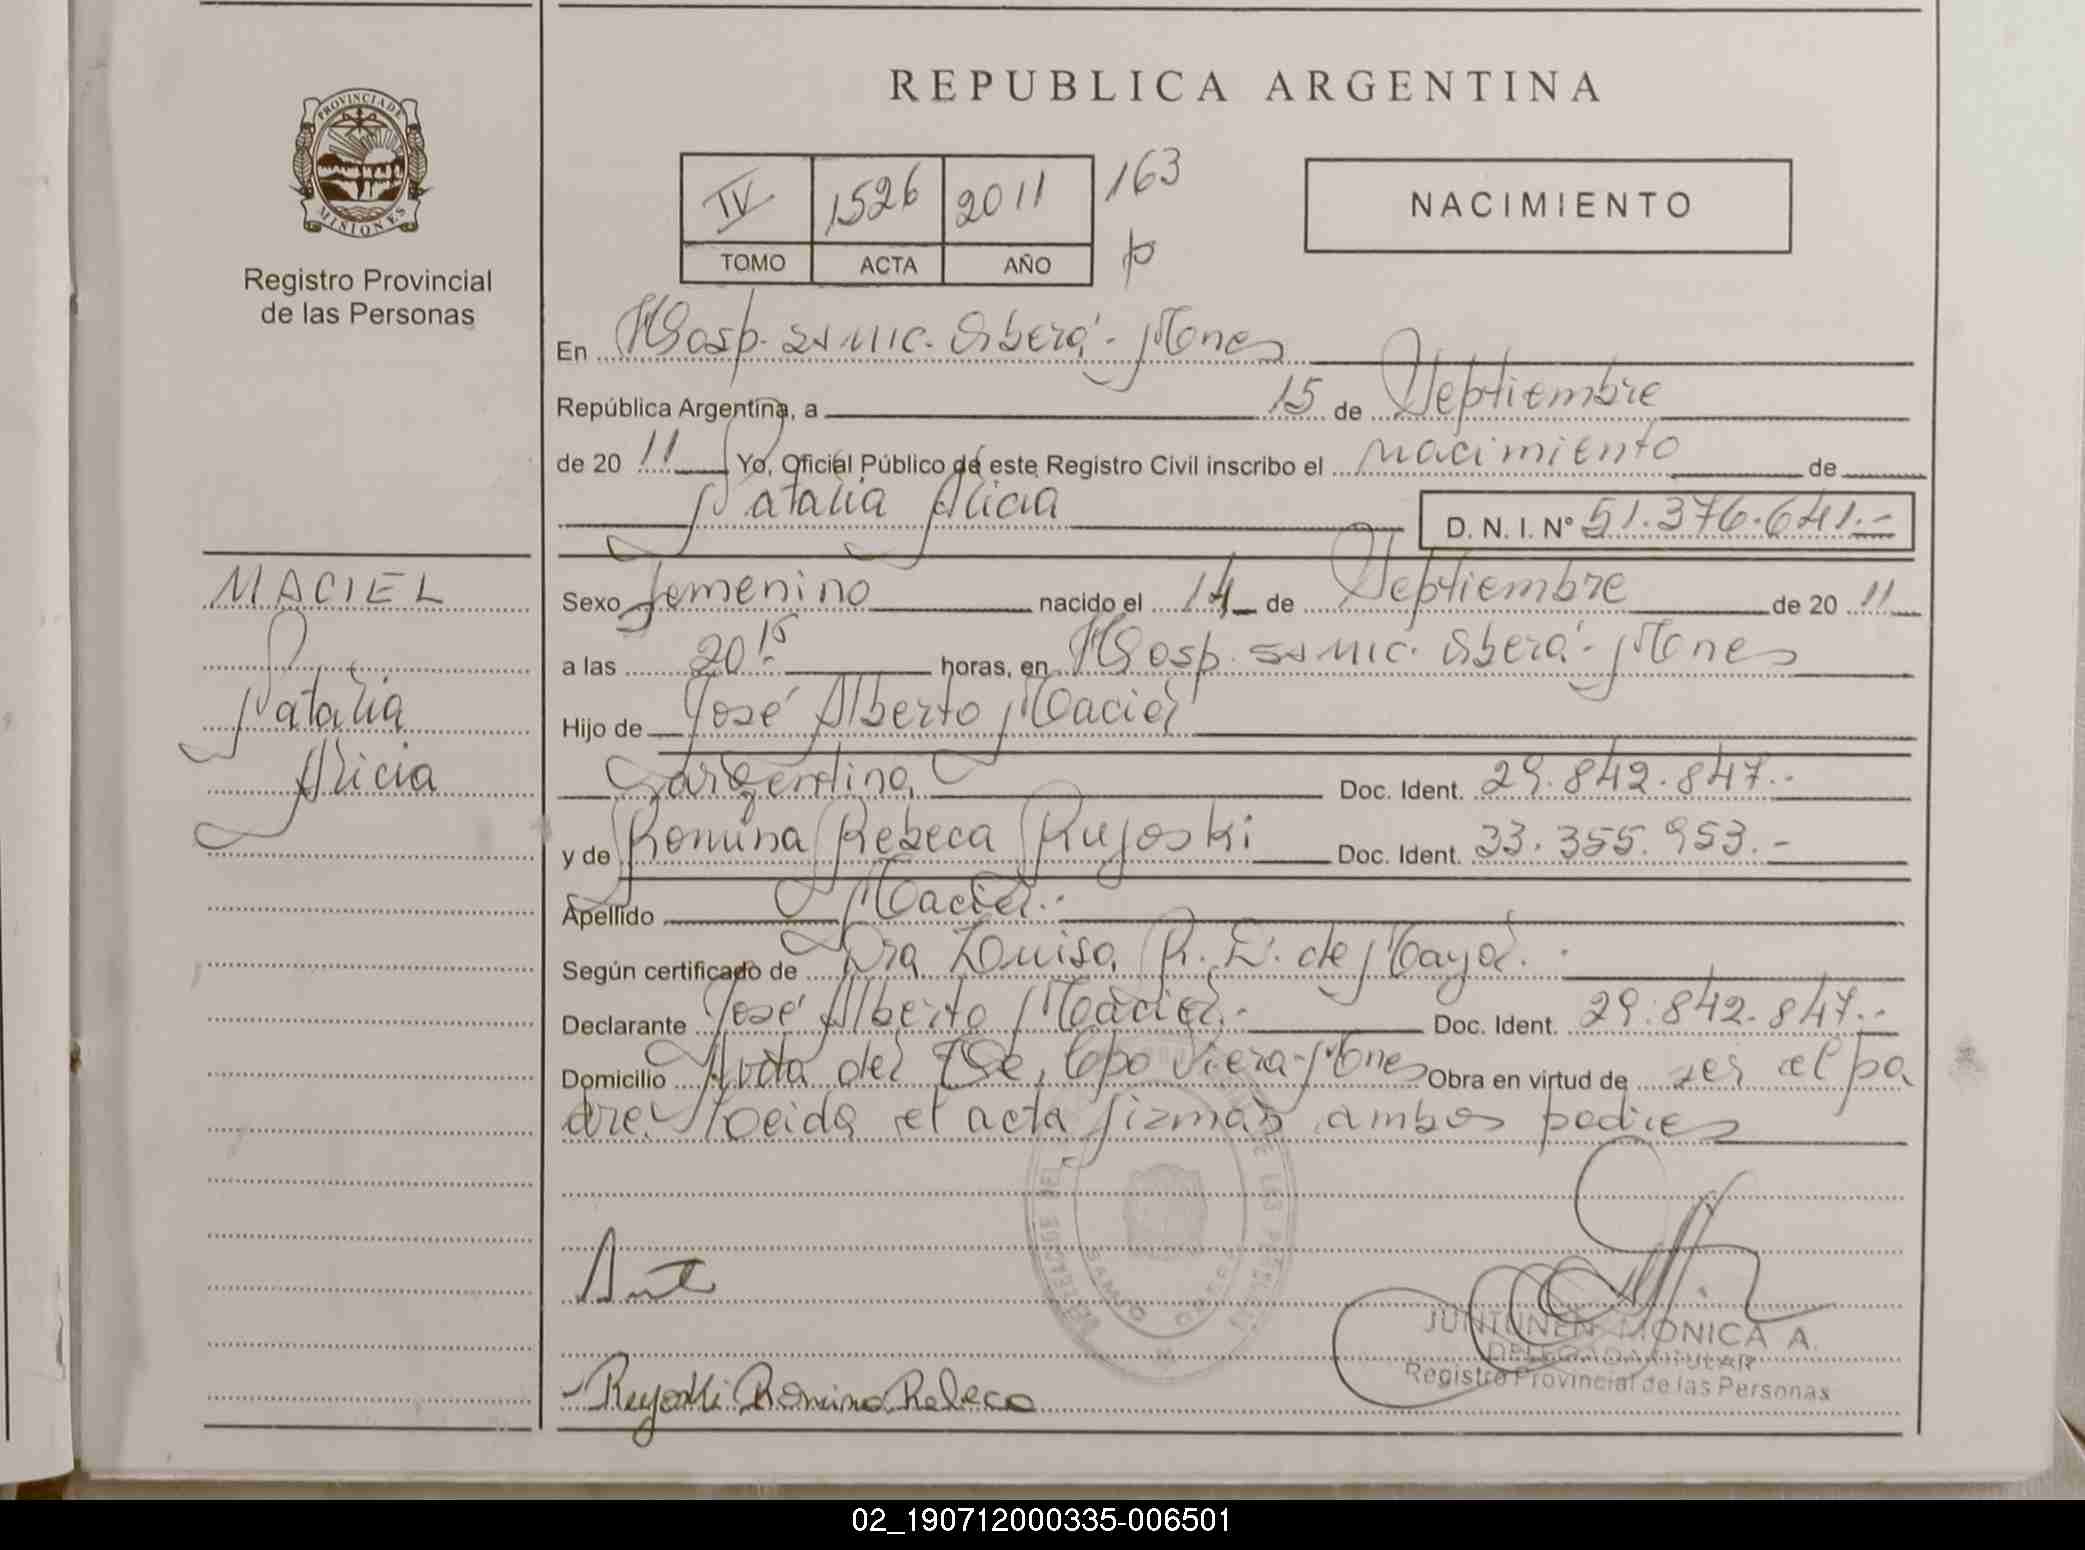 PROVINCIA DE
MISIONES
Registro Provincial
de las Personas
REPUBLICA ARGENTINA
IV 1526 2011 163
TOMO ACTA AÑO
NACIMIENTO
En Hosp. Oberá - Mnes
República Argentina, a 15 de Septiembre
de 20 11 Yo, Oficial Público de este Registro Civil inscribo el nacimiento de
Natalia Alicia D. N. I. N° 51.376.641.-
MACIEL
Natalia
Alicia
Sexo femenino nacido el 14 de Septiembre de 20 11
a las 20 15 horas, en Hosp. Oberá - Mnes
Hijo de José Alberto Maciel
Argentina Doc. Ident. 29.842.847.-
y de Romina Rebeca Rujoski Doc. Ident. 33.355.953.-
Apellido Maciel.-
Según certificado de Dra Luisa R. de Maya.
Declarante José Alberto Maciel.- Doc. Ident. 29.842.847.-
Domicilio del Cpo Viera - Mnes Obra en virtud de ser el pa
dre. Leida el acta firman ambos padres
Rujoski Romina Rebeca
JUNTUNEN MONICA A.
DELEGADA TITULAR
Registro Provincial de las Personas
02_190712000335-006501